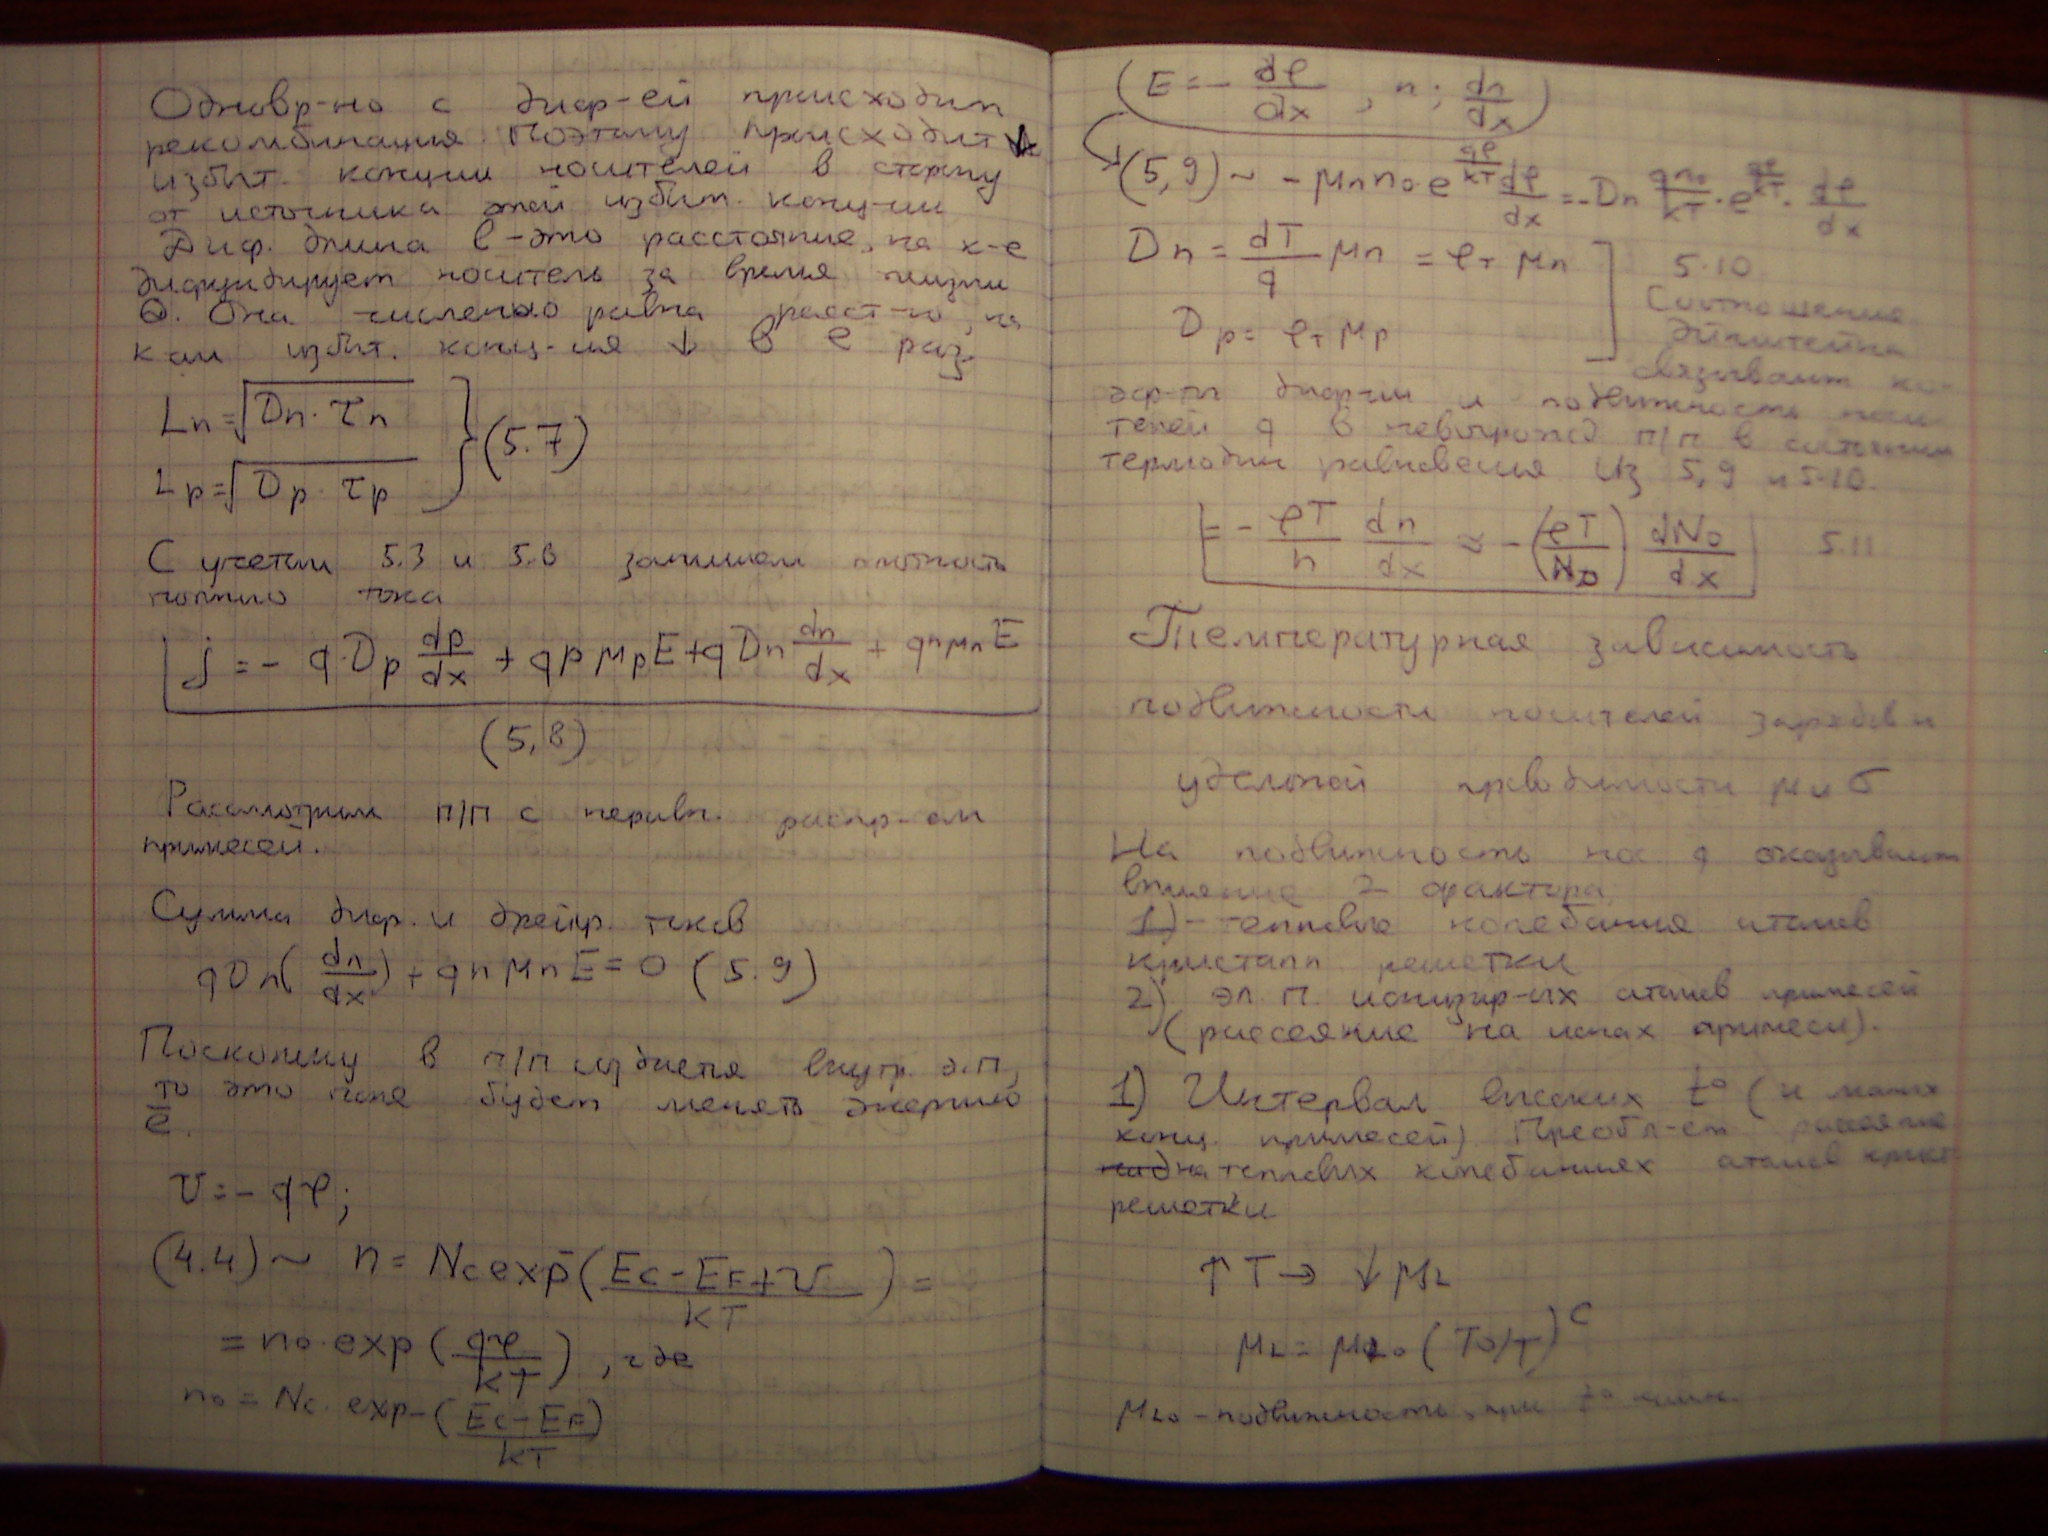 Одновр-но с диф-ей происходит
рекомбинация. Поэтому происходит ↓
избыт. конции носителей в сторону
от источника этой избыт. конц-ии
Диф. длина в - это расстояние, на к-е
диффундирует носитель за время жизни
Она численно равна расст-ю, на
ком избыт. конц-ия ↓ в e раз.
Ln = √Dn · τn
(5.7)
Lp = √Dp · τp
С учетом 5.3 и 5.6 запишем плотность
полного тока
j = - q·Dp dp/dx + qpμpE + qDn dn/dx + qnμnE
(5,8)
Рассмотрим п/п с неравн. распр-ем
примесей.
Сумма диф. и дрейф. токов
qDn(dn/dx) + qnμnE = 0 (5.9)
Поскольку в п/п создается внутр. э.п,
то это поле будет менять энергию
ē.
U = - qφ;
(4.4) ~ n = Nc exp-(Ec - EF + U / kT) =
= n0·exp(qφ/kT), где
n0 = Nc·exp-(Ec - EF / kT)
(E = - dφ/dx, n; dn/dx)
(5,9) ~ - μn n0·e^(qφ/kT) dφ/dx = -Dn qn0/kT · e^(qφ/kT) · dφ/dx
Dn = dT/q μn = φT μn
5.10
Соотношение
Dp = φT μp
Эйнштейна
связывает ко-
эф-ты диф-ии и подвижность носи
телей q в невырожд п/п в состоянии
термодин равновесия Из 5,9 и 5.10.
= - φT/n dn/dx ≈ - (φT/ND) dND/dx 5.11
Температурная зависимость
подвижности носителей зарядов и
удельной проводимости μ и σ
На подвижность нос. q оказывают
влияние 2 фактора
1) - тепловые колебания атомов
кристалл решетки
2) эл. п. ионизир-ых атомов примесей
(рассеяние на ионах примеси).
1) Интервал высоких t° (и малых
конц. примесей) Преобл-ет рассеяние
на тепловых колебаниях атомов крист
решетки
↑ T → ↓ μL
μL = μL0 (T0/T)^C
μL0 - подвижность при t°